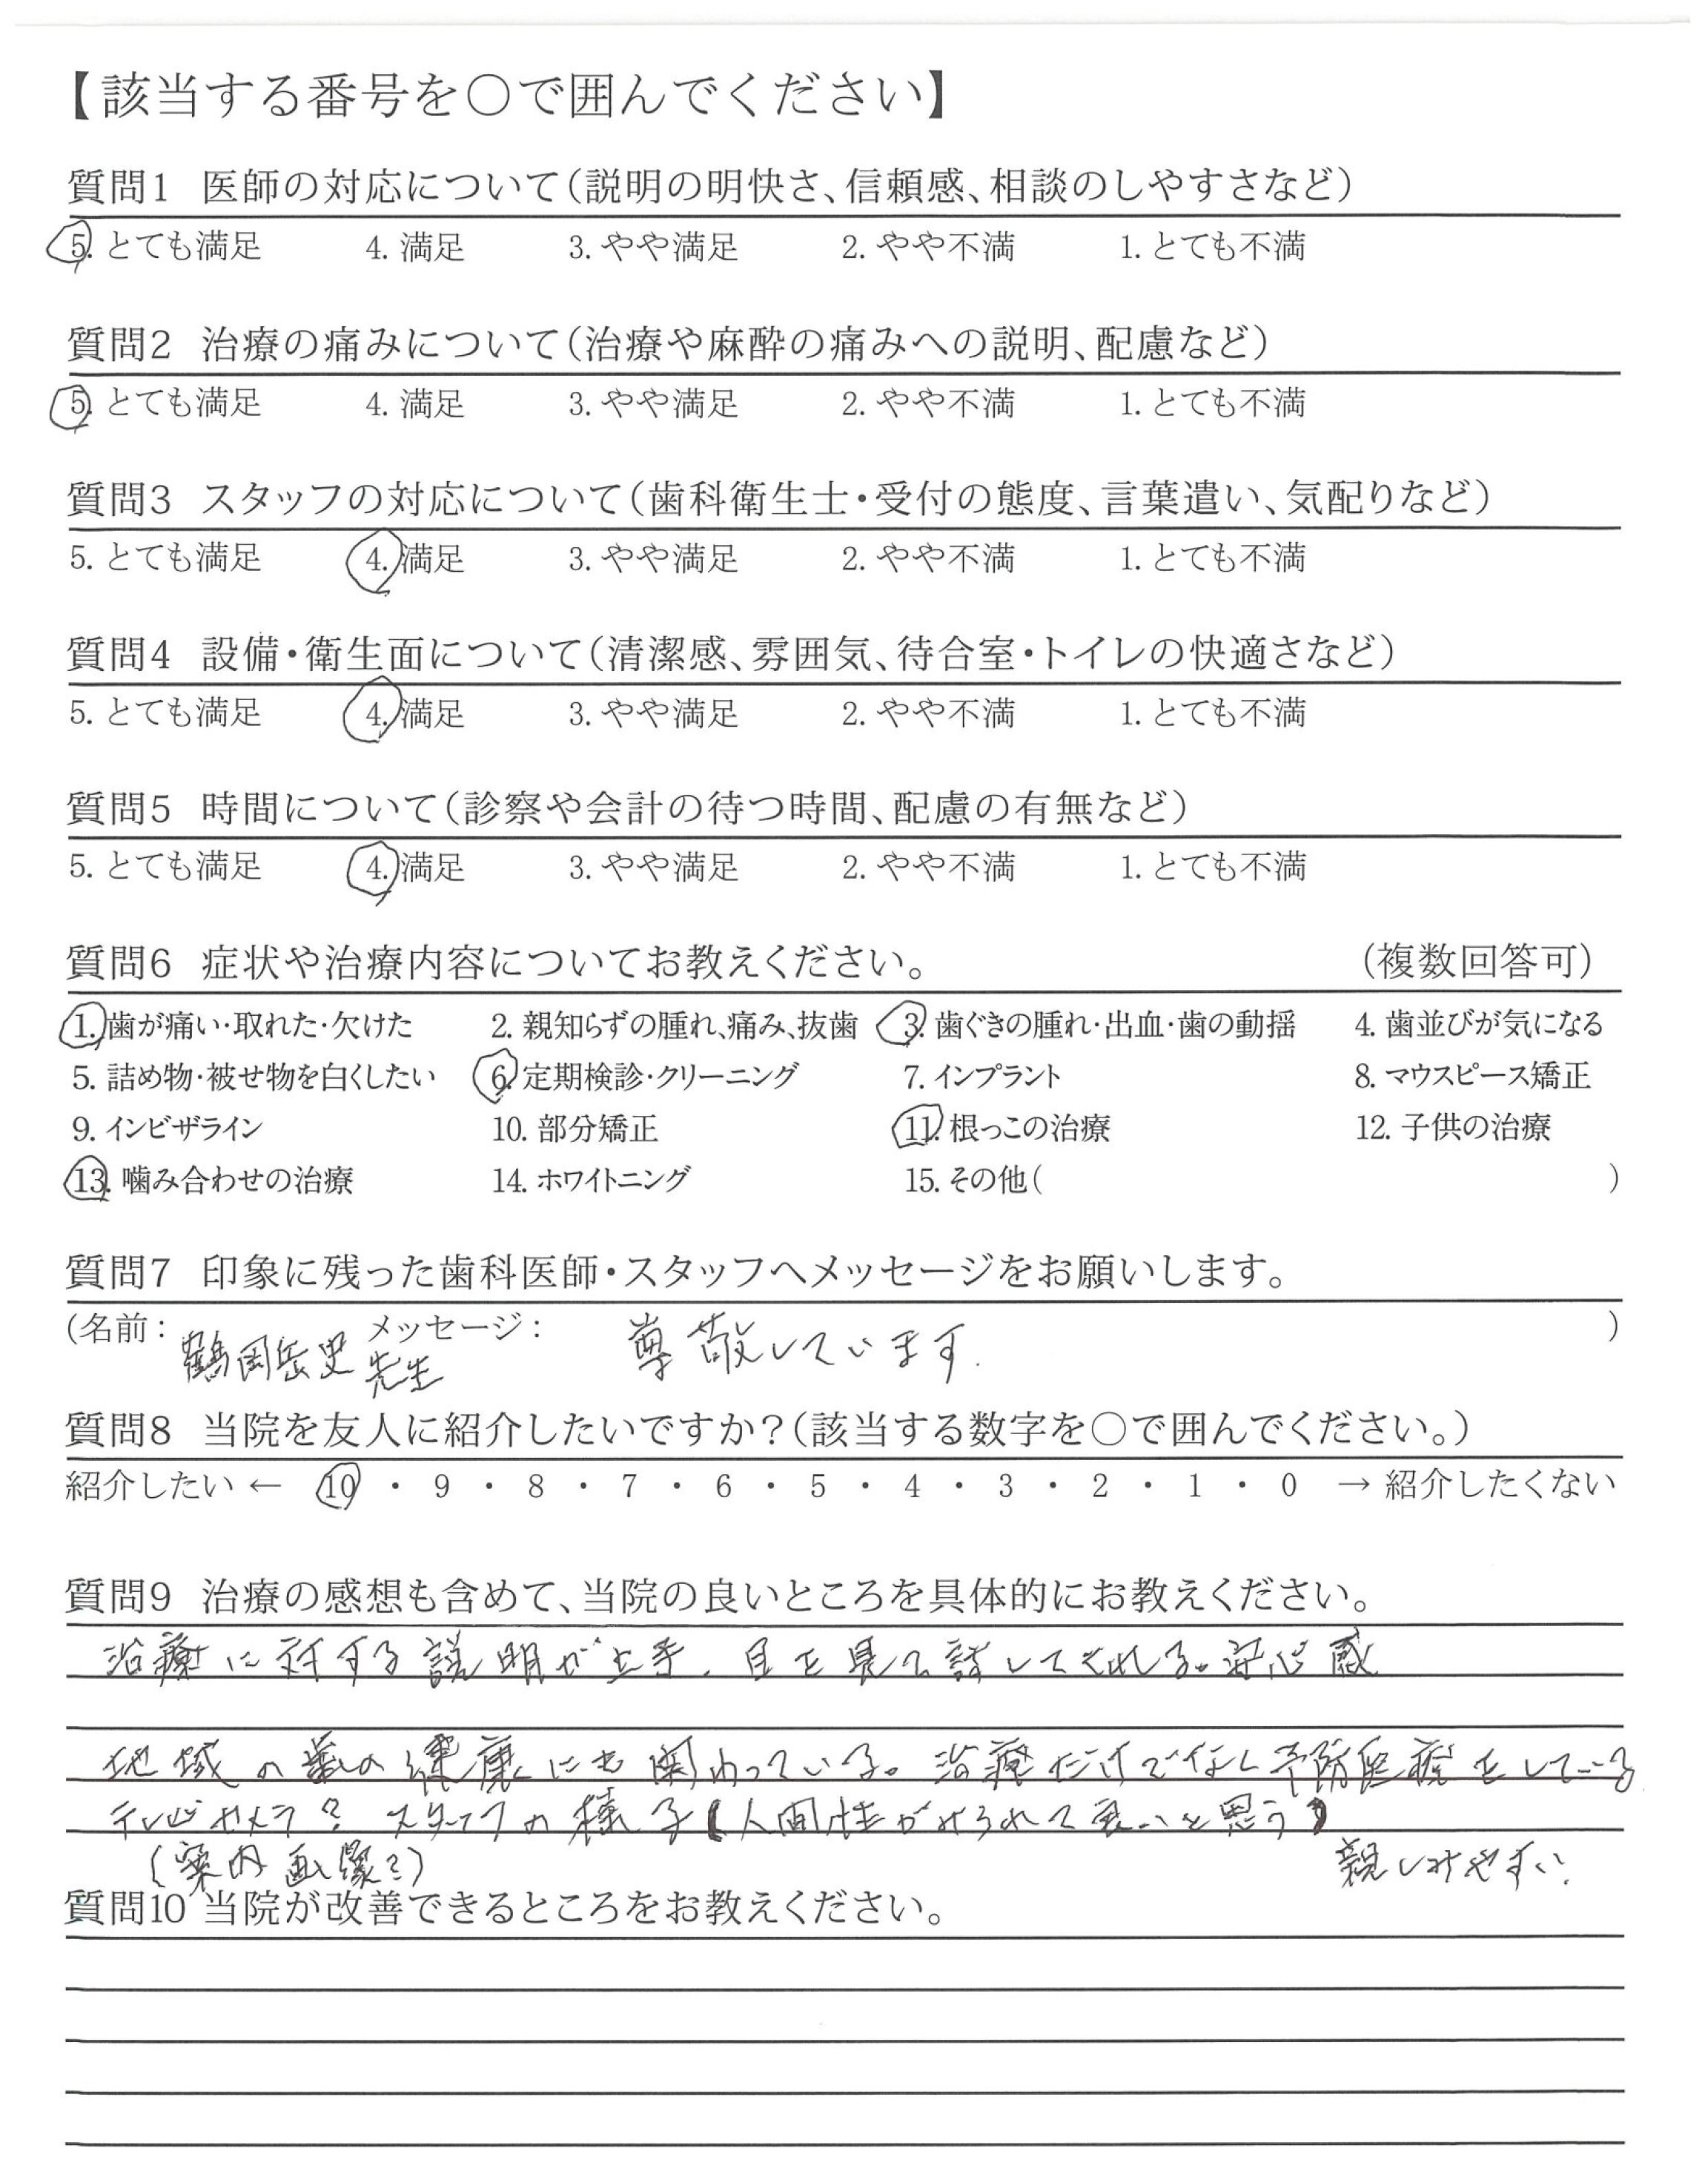 【該当する番号を○で囲んでください】
質問1 医師の対応について(説明の明快さ、信頼感、相談のしやすさなど)
5. とても満足 4. 満足 3. やや満足 2. やや不満 1. とても不満
質問2 治療の痛みについて(治療や麻酔の痛みへの説明、配慮など)
5. とても満足 4. 満足 3. やや満足 2. やや不満 1. とても不満
質問3 スタッフの対応について(歯科衛生士・受付の態度、言葉遣い、気配りなど)
5. とても満足 4. 満足 3. やや満足 2. やや不満 1. とても不満
質問4 設備・衛生面について(清潔感、雰囲気、待合室・トイレの快適さなど)
5. とても満足 4. 満足 3. やや満足 2. やや不満 1. とても不満
質問5 時間について(診察や会計の待つ時間、配慮の有無など)
5. とても満足 4. 満足 3. やや満足 2. やや不満 1. とても不満
質問6 症状や治療内容についてお教えください。 (複数回答可)
1. 歯が痛い・取れた・欠けた 2. 親知らずの腫れ、痛み、抜歯 3. 歯ぐきの腫れ・出血・歯の動揺 4. 歯並びが気になる
5. 詰め物・被せ物を白くしたい 6. 定期検診・クリーニング 7. インプラント 8. マウスピース矯正
9. インビザライン 10. 部分矯正 11. 根っこの治療 12. 子供の治療
13. 噛み合わせの治療 14. ホワイトニング 15. その他( )
質問7 印象に残った歯科医師・スタッフへメッセージをお願いします。
(名前: 鶴岡岳史先生 メッセージ: 尊敬しています. )
質問8 当院を友人に紹介したいですか?(該当する数字を○で囲んでください。)
紹介したい ← 10 ・ 9 ・ 8 ・ 7 ・ 6 ・ 5 ・ 4 ・ 3 ・ 2 ・ 1 ・ 0 → 紹介したくない
質問9 治療の感想も含めて、当院の良いところを具体的にお教えください。
治療に対する説明が上手、目を見て話してくれる。安心感
地域の歯の健康にも関わっている。治療だけでなく予防医療をしている
テレビカメラ? スタッフの様子(人間性がみられて良いと思う)
(案内画像?) 親しみやすい.
質問10 当院が改善できるところをお教えください。